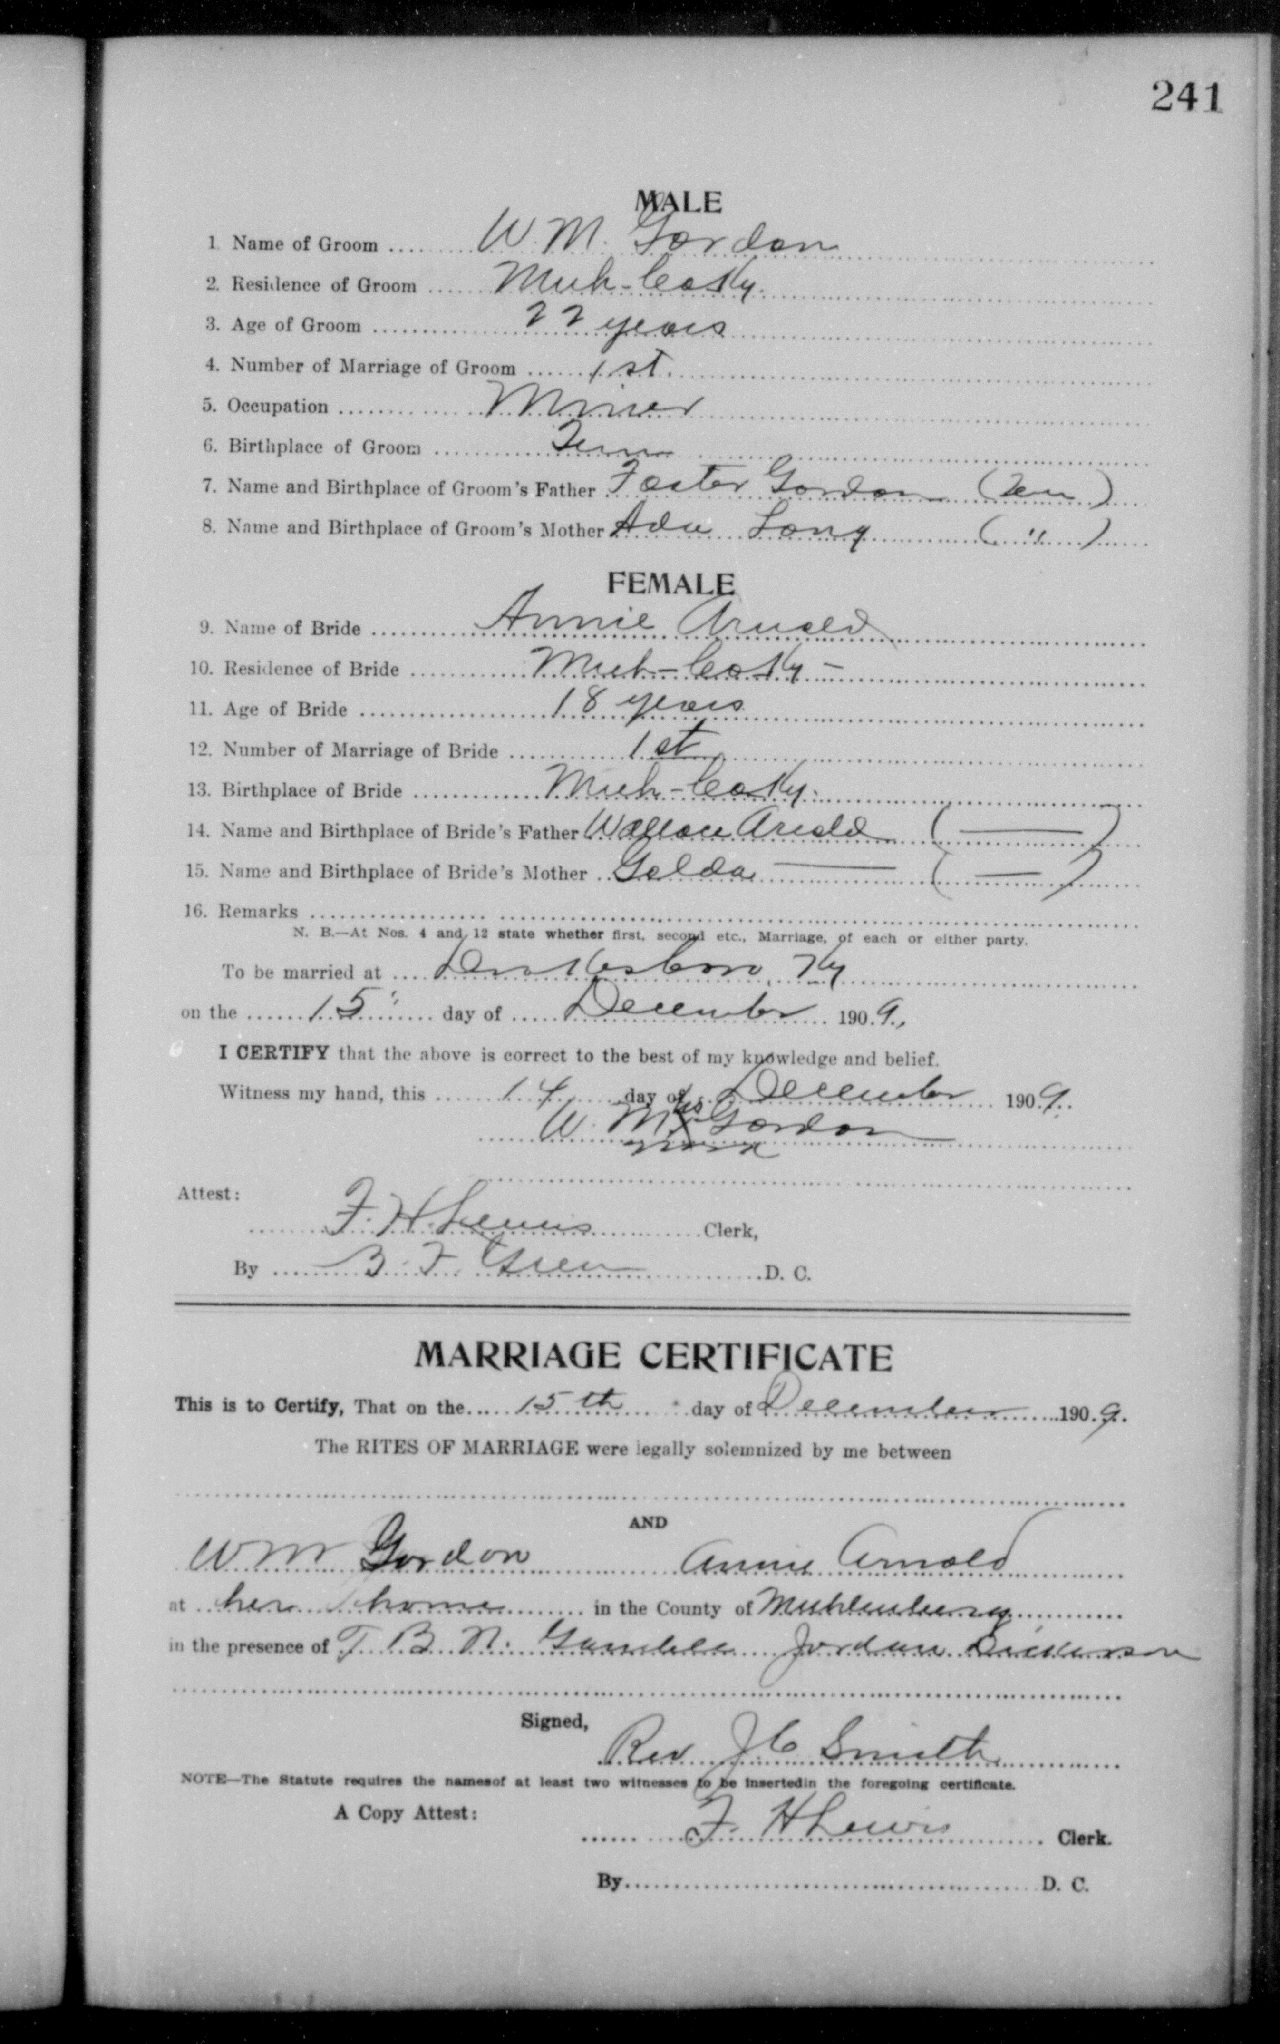 241
MALE
1. Name of Groom W. M. Gordon
2. Residence of Groom Muh - Co Ky.
3. Age of Groom 22 years
4. Number of Marriage of Groom 1st.
5. Occupation Miner
6. Birthplace of Groom Tenn
7. Name and Birthplace of Groom's Father Foster Gordon (Ten)
8. Name and Birthplace of Groom's Mother Ada Long ( " )
FEMALE
9. Name of Bride Annie Arnold
10. Residence of Bride Muh - Co Ky -
11. Age of Bride 18 years
12. Number of Marriage of Bride 1st
13. Birthplace of Bride Muh - Co Ky.
14. Name and Birthplace of Bride's Father Arnold ( — )
15. Name and Birthplace of Bride's Mother Golda — ( — )
16. Remarks
N. B.—At Nos. 4 and 12 state whether first, second etc., Marriage, of each or either party.
To be married at Ky
on the 15" day of December 1909,
I CERTIFY that the above is correct to the best of my knowledge and belief.
Witness my hand, this 14 day of December 1909.
his
W. M. X Gordon
mark
Attest:
F. H. Lewis Clerk,
By B. F. Green D. C.
MARRIAGE CERTIFICATE
This is to Certify, That on the 15th day of December 1909.
The RITES OF MARRIAGE were legally solemnized by me between
AND
W M Gordon Annie Arnold
at her home in the County of Muhlenberg
in the presence of T. B. N. Gamble Jordan Dickerson
Signed,
Rev J C Smith
NOTE—The Statute requires the namesof at least two witnesses to be insertedin the foregoing certificate.
A Copy Attest:
F. H Lewis Clerk.
By D. C.